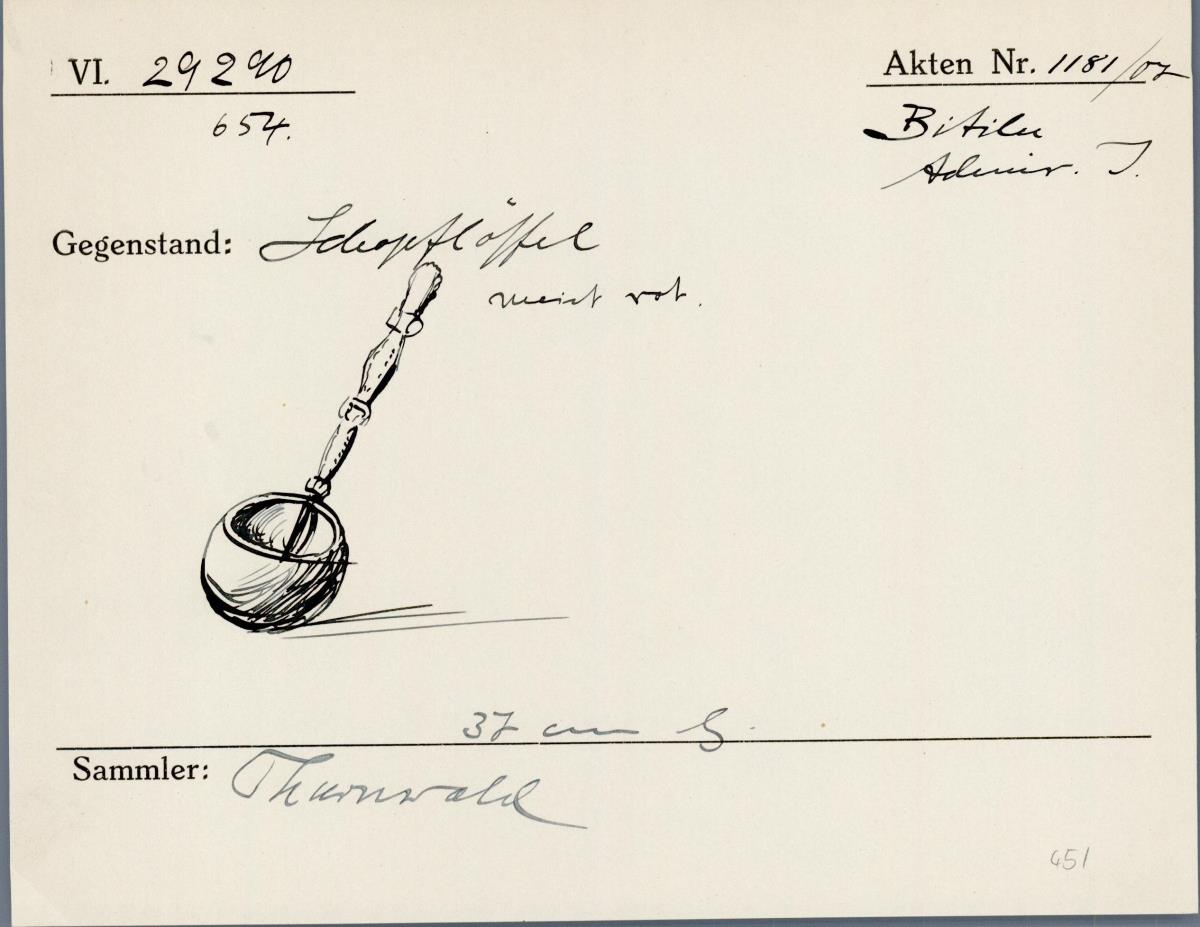 VI. 29290
Akten Nr. 1181/07
654.
Bitilu
Admir. I.
Gegenstand: Schöpflöffel
meist rot.
37 cm
Sammler: Thurnwald
451